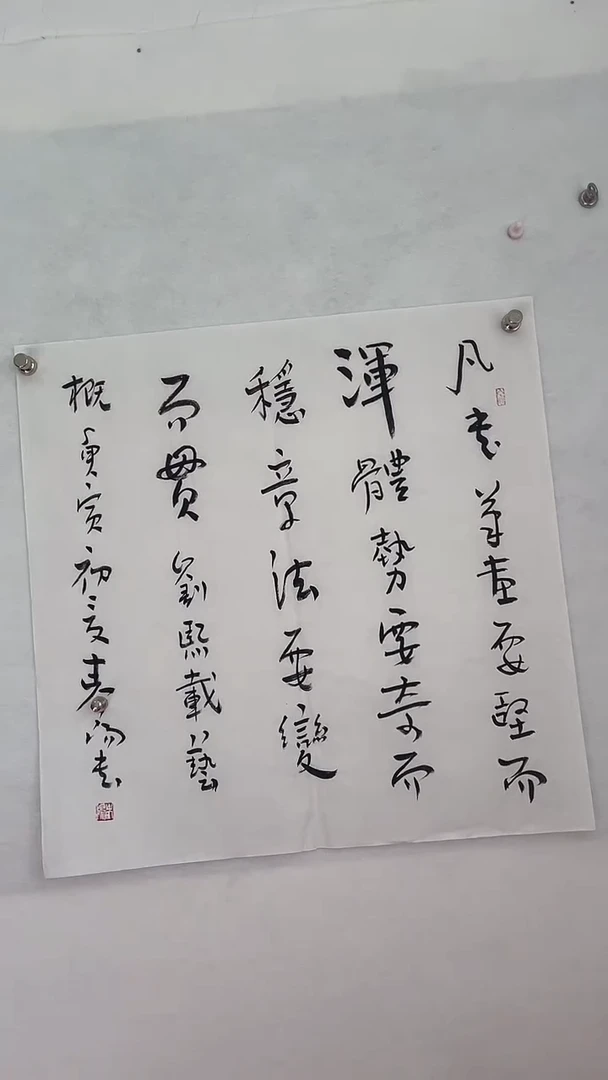 凡書筆畫要堅而
渾體勢要奇而
穩章法要變
而貫劉熙載藝
概庚寅初夏書